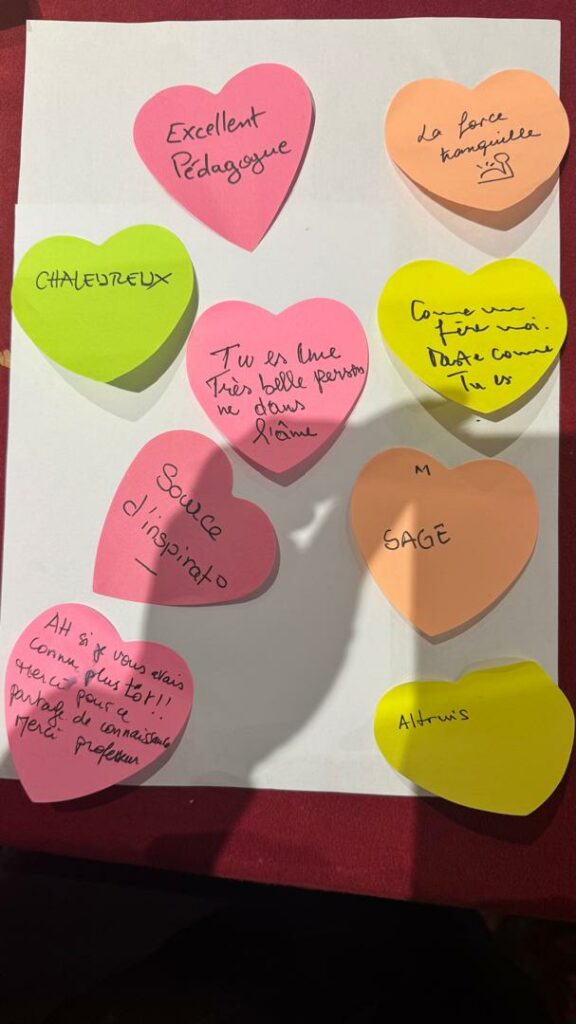 Excellent
Pédagogue
La force
tranquille
CHALEUREUX
Tu es Une
Très belle person
ne dans
l'âme
Come un
fère moi.
Reste comme
Tu es
Source
d'inspirato
M
SAGE
AH si je vous avais
connu plus tôt!!
Merci pour ce
partage de connaissance
Merci professeur
Altruis